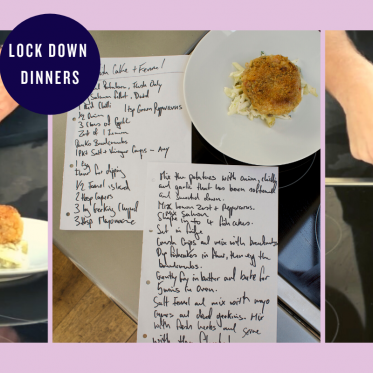 LOCK DOWN
DINNERS
Cake + Fennel!
Potatoes,
Salmon fillet,
1 Red Chilli
1 tsp Green Peppercorns
½ Onion
3 Cloves of Garlic
Zest of 1 Lemon
Panko Breadcrumbs
1 Pkt Salt + Vinegar Crisps - Any
1 Egg
flour for dipping
½ Fennel sliced
2 tsp Capers
3 Gherkins Chopped
3 tbsp Mayonnaise
Mix the potatoes with onion, chilly
and garlic that has been softened
and sweated down.
Mix lemon Zest + Peppercorns.
Salmon
into 4 fishcakes.
Set in fridge
Crush Crisps and mix with breadcrumbs
Dip fishcakes in flour, then egg then
breadcrumbs.
Gently fry in butter and bake for
5 mins in oven.
Salt fennel and mix with mayo
capers and diced gherkins. Mix
with fresh herbs and serve
with the